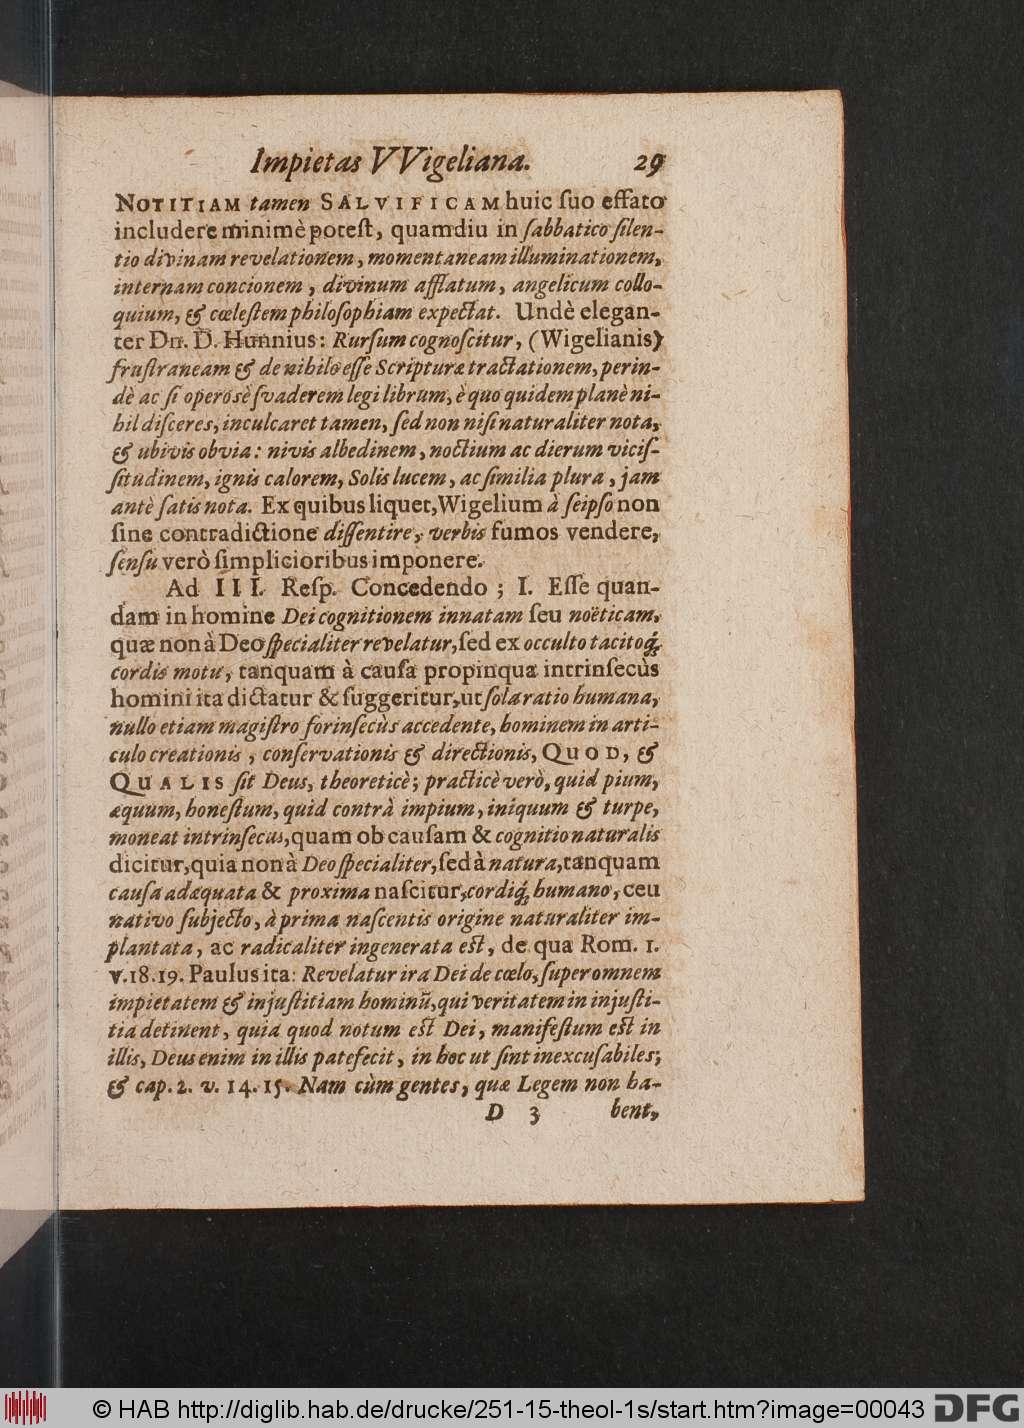 Impietas VVigeliana. 29
NOTITIAM tamen SALVIFICAM huic ſuo effato
includere minimè poteſt, quamdiu in ſabbatico ſilen-
tio divinam revelationem, momentaneam illuminationem,
internam concionem, divinum afflatum, angelicum collo-
quium, & cœleſtem philoſophiam expectat. Undè elegan-
ter Dn. D. Hunnius: Rurſum cognoſcitur, (Wigelianis)
fruſtraneam & de nihilo eſſe Scripturæ tractationem, perin-
dè ac ſi operosè ſvaderem legi librum, è quo quidem planè ni-
hil diſceres, inculcaret tamen, ſed non niſi naturaliter nota,
& ubivis obvia: nivis albedinem, noctium ac dierum viciſ-
ſitudinem, ignis calorem, Solis lucem, ac ſimilia plura, jam
antè ſatis nota. Ex quibus liquet, Wigelium à ſeipſo non
ſine contradictione diſſentire, verbis fumos vendere,
ſenſu verò ſimplicioribus imponere.
Ad III. Reſp. Concedendo; I. Eſſe quan-
dam in homine Dei cognitionem innatam ſeu noëticam,
quæ non à Deo ſpecialiter revelatur, ſed ex occulto tacitoq́;
cordis motu, tanquam à cauſa propinqua intrinſecùs
homini ita dictatur & ſuggeritur, ut ſola ratio humana,
nullo etiam magiſtro forinſecùs accedente, hominem in arti-
culo creationis, conſervationis & directionis, QUOD, &
QUALIS ſit Deus, theoreticè; practicè verò, quid pium,
æquum, honeſtum, quid contrà impium, iniquum & turpe,
moneat intrinſecus, quam ob cauſam & cognitio naturalis
dicitur, quia non à Deo ſpecialiter, ſed à natura, tanquam
cauſa adæquata & proxima naſcitur, cordiq́; humano, ceu
nativo ſubjecto, à prima naſcentis origine naturaliter im-
plantata, ac radicaliter ingenerata eſt, de qua Rom. 1.
v. 18. 19. Paulus ita: Revelatur ira Dei de cœlo, ſuper omnem
impietatem & injuſtitiam hominū, qui veritatem in injuſti-
tia detinent, quia quod notum eſt Dei, manifeſtum eſt in
illis, Deus enim in illis patefecit, in hoc ut ſint inexcuſabiles;
& cap. 2. v. 14. 15. Nam cùm gentes, quæ Legem non ha-
D 3 bent,
© HAB http://diglib.hab.de/drucke/251-15-theol-1s/start.htm?image=00043
DFG